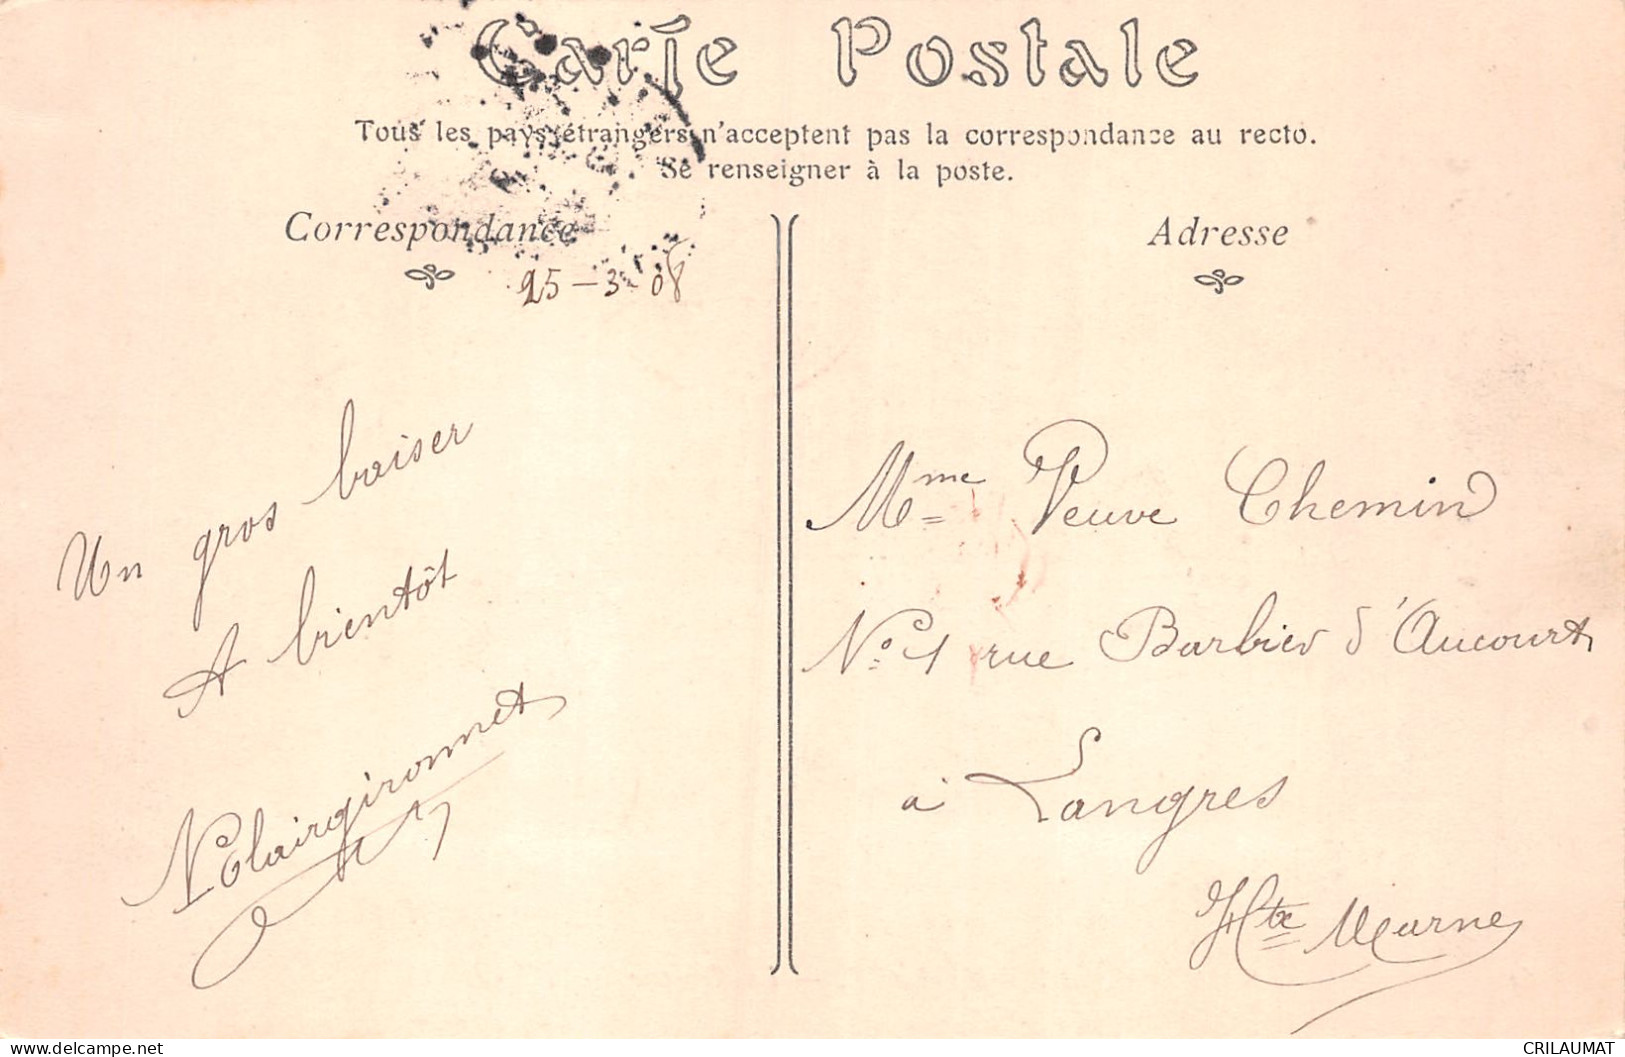 Carte Postale
Tous les pays étrangers n'acceptent pas la correspondance au recto.
Se renseigner à la poste.
Correspondance
Adresse
25-3-08
Un gros baiser
A bientôt
Mme Veuve Chemin
No 1 rue Barbier d'Aucourt
à Langres
Hte Marne
CRILAUMAT